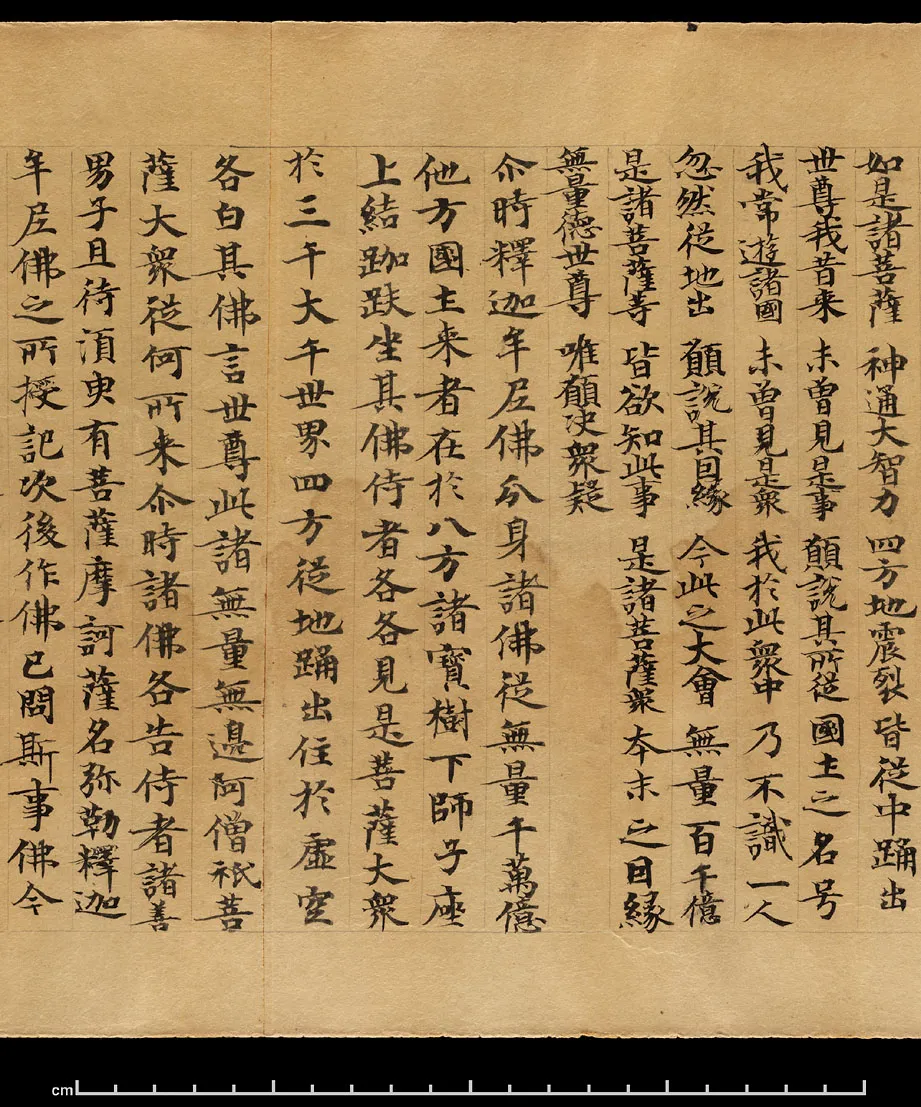 如是諸菩薩 神通大智力 四方地震裂 皆従中踊出
世尊我昔来 未曽見是事 願說其所従 國土之名号
我常遊諸國 未曽見是衆 我於此衆中 乃不識一人
忽然従地出 願說其因緣 今此之大會 無量百千億
是諸菩薩等 皆欲知此事 是諸菩薩衆 夲末之因緣
無量德世尊 唯願決衆疑
尒時釋迦牟尼佛分身諸佛従無量千萬億
他方國土来者在於八方諸寶樹下師子座
上結跏趺坐其佛侍者各各見是菩薩大衆
於三千大千世界四方従地踊出住於虛空
各白其佛言世尊此諸無量無邊阿僧祇菩
薩大衆従何所来尒時諸佛各告侍者諸善
男子且待須臾有菩薩摩訶薩名弥勒釋迦
牟尼佛之所授記次後作佛已問斯事佛今
cm